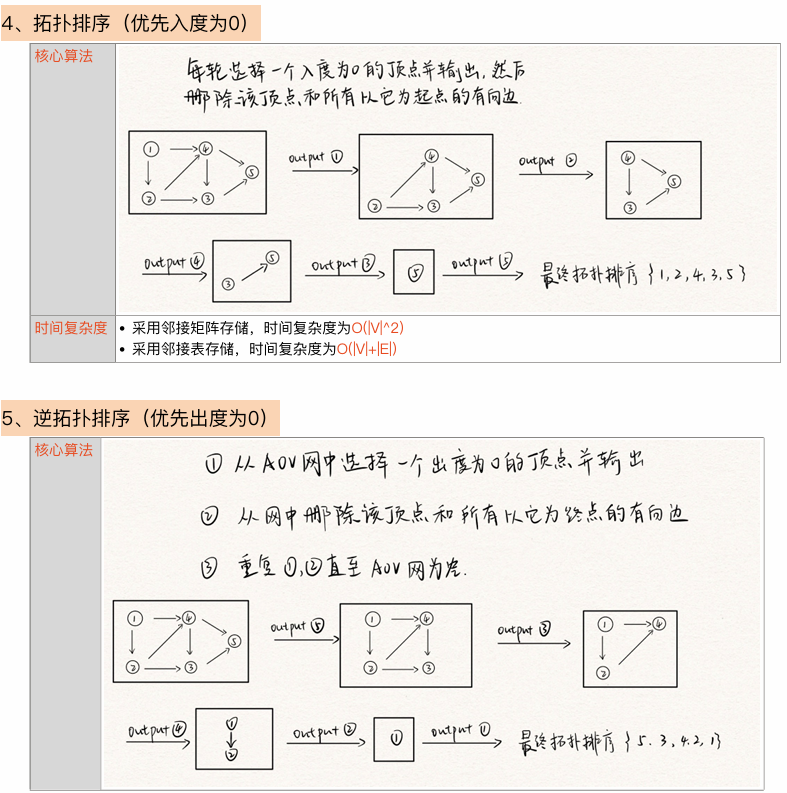 4、拓扑排序（优先入度为0）
核心算法
每轮选择一个入度为0的顶点并输出，然后
删除该顶点和所有以它为起点的有向边.
① ④ ⑤ ② ③
output ①
④ ⑤ ② ③
output ②
④ ⑤ ③
output ④
⑤ ③
output ③
⑤
output ⑤
最终拓扑排序 {1,2,4,3,5}
时间复杂度
• 采用邻接矩阵存储，时间复杂度为O(|V|^2)
• 采用邻接表存储，时间复杂度为O(|V|+|E|)
5、逆拓扑排序（优先出度为0）
核心算法
① 从AOV网中选择一个出度为0的顶点并输出
② 从网中删除该顶点和所有以它为终点的有向边
③ 重复①,②直至AOV网为空.
① ④ ⑤ ② ③
output ⑤
① ④ ② ③
output ③
① ④ ②
output ④
① ②
output ②
①
output ①
最终拓扑排序 {5.3,4.2,1}